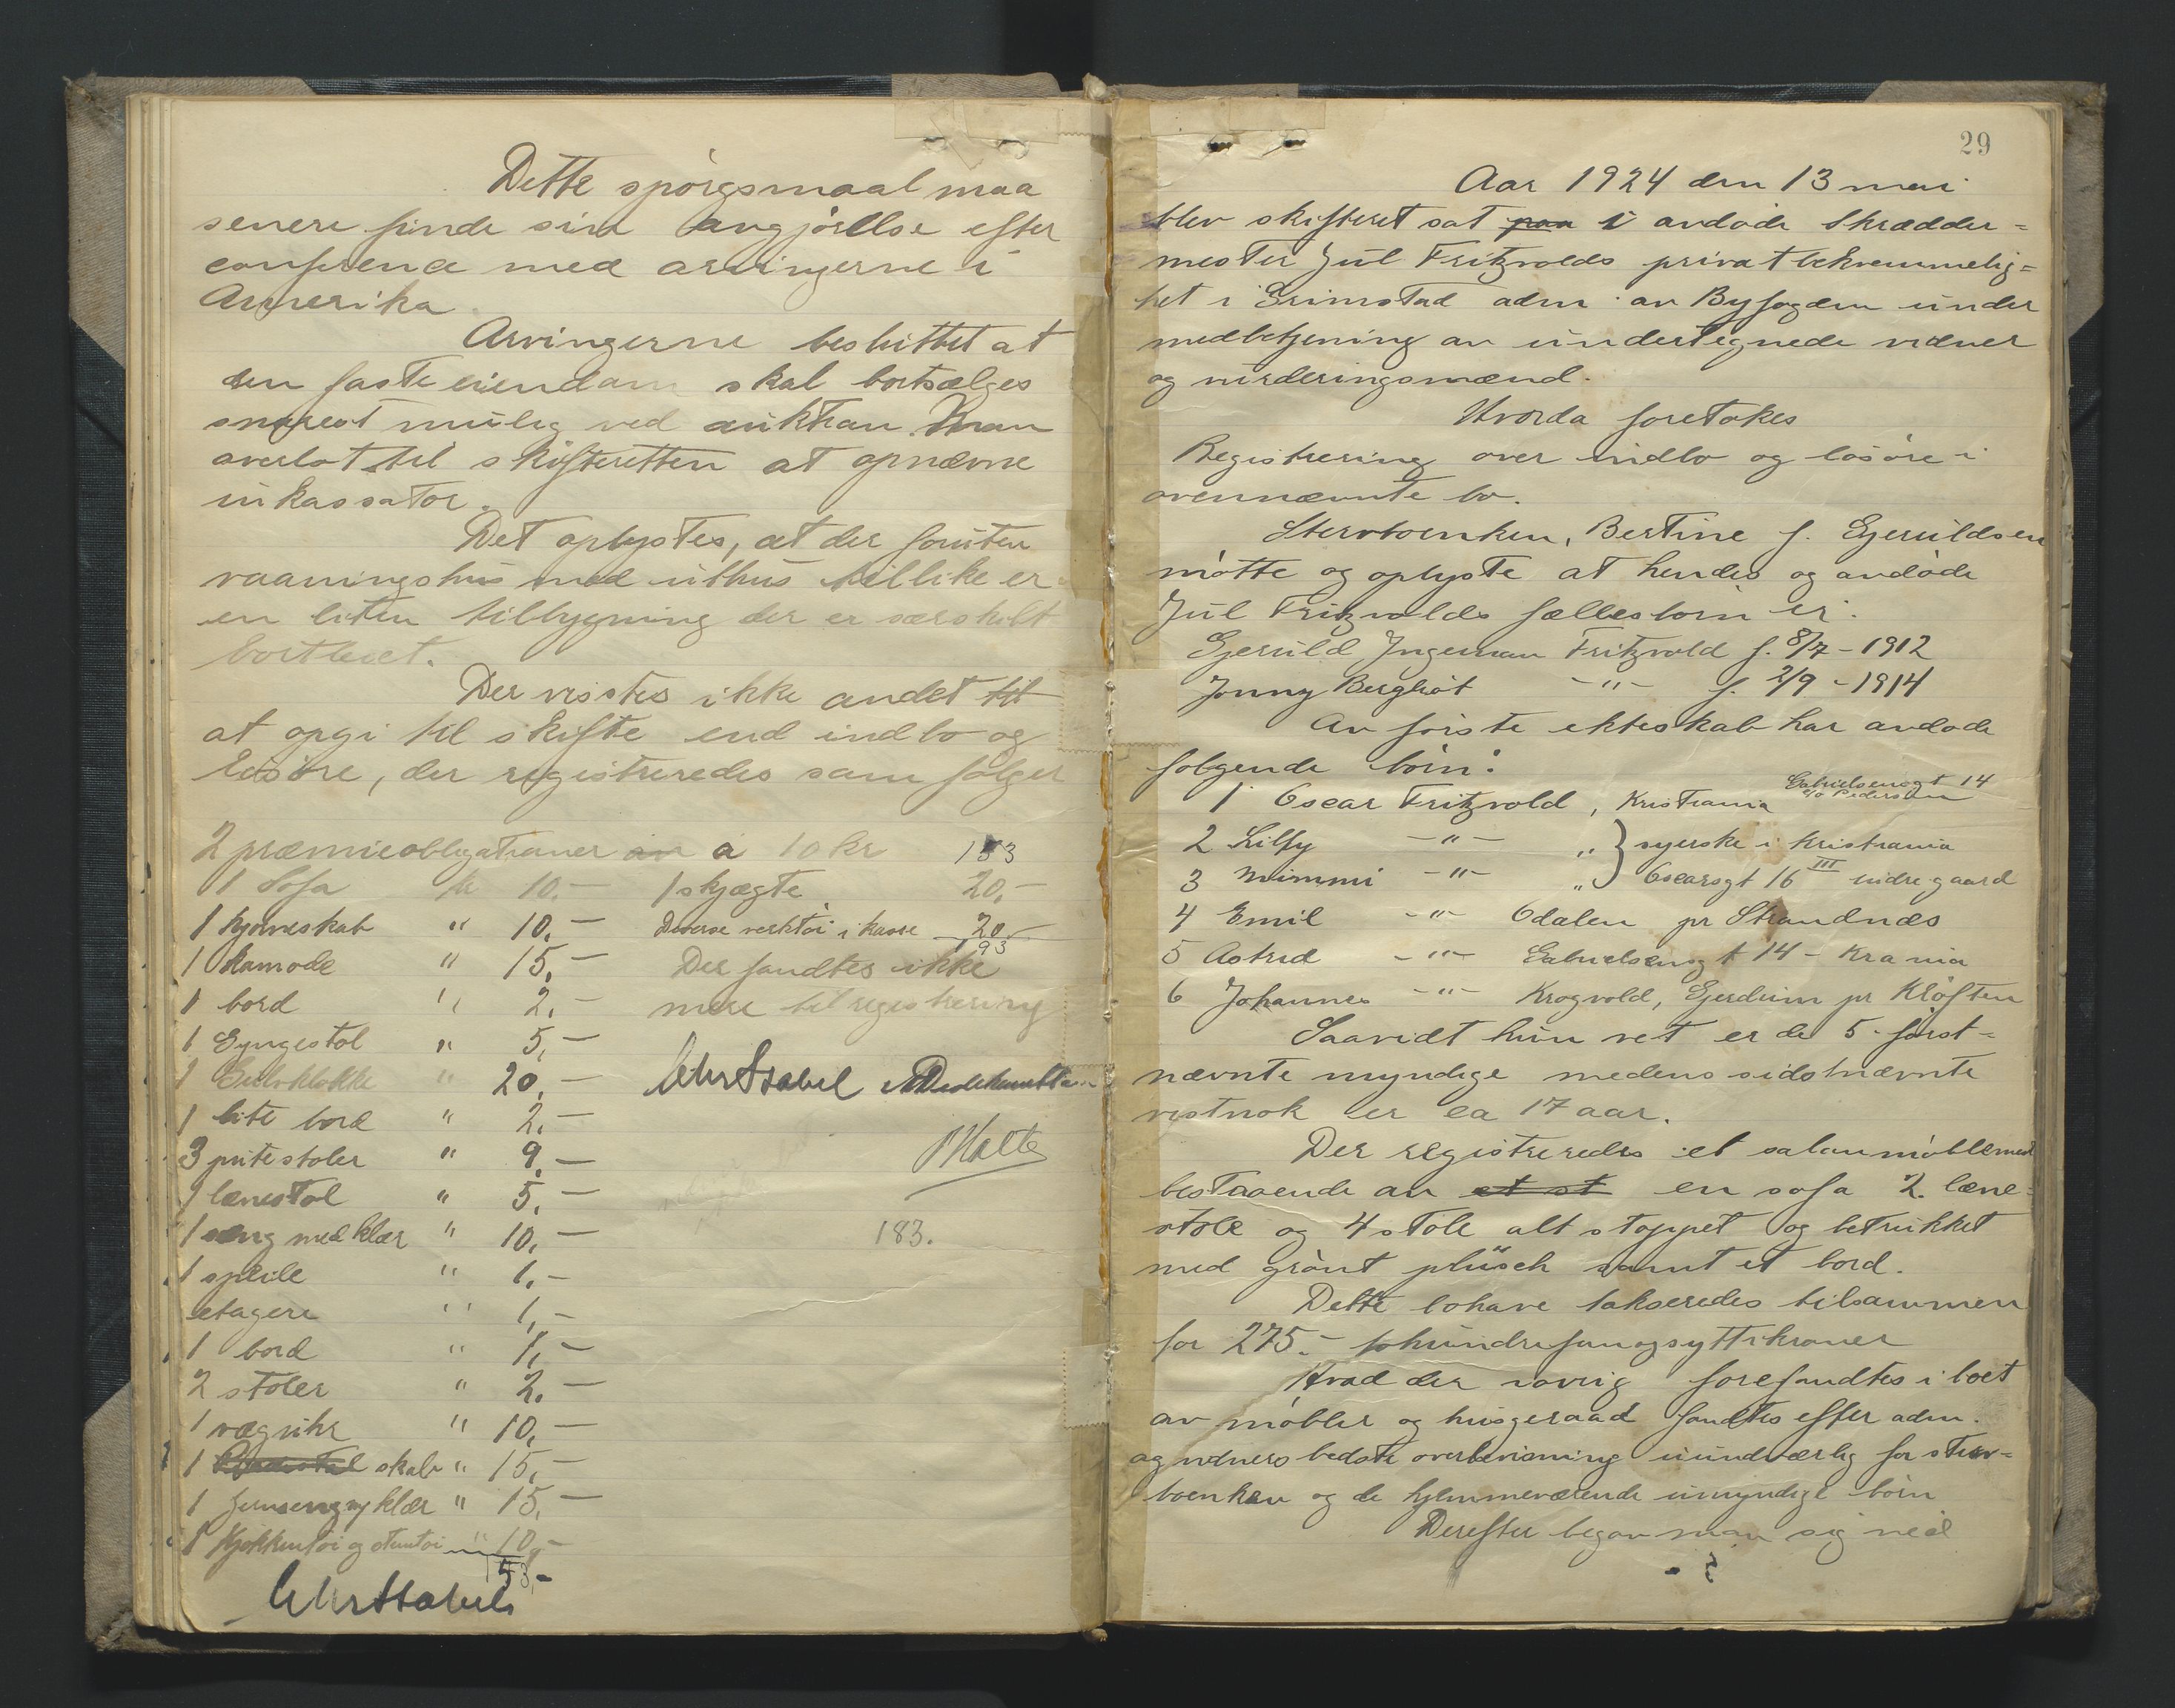 Dette spörgsmaal maa
senere finde sin avgjörelse efter
conference med arvingerne i
Amerika.
Arvingerne besluttet at
den faste eiendom skal bortsælges
snarest mulig ved auktion. Man
overlot til skifteretten at opnævne
inkassator.
Det oplystes, at der foruten
vaaningshus med uthus tillike er
en liten tilbygning der er særskilt
bortleiet.
Der visstes ikke andet til
at opgi til skifte end indbo og
lösöre, der registreredes som fölger
2 præmieobligationer av a 10 kr
1 Sofa kr 10.-
1 hjörneskab " 10.-
1 Komode " 15.-
1 bord " 2.-
1 Gyngestol " 5.-
1 Gulvklokke " 20.-
1 lite bord " 2.-
3 putestoler " 9.-
1 lænestol " 5.-
1 seng med klær " 10.-
1 speile " 1.-
etagere " 1.-
1 bord " 1.-
2 stoler " 2.-
1 væguhr " 10.-
1 skab " 15.-
1 Jernseng m klær " 15.-
1 Kjökkentöi og stentöi " 10.-
153.-
Chr Stabel
153
1 skjægte 20.-
Diverse verktöi i kasse 20.-
193
Der fandtes ikke
mere til registrering
Chr Stabel
183.
29
Aar 1924 den 13 mai
blev skifteret sat paa i avdöde Skrædder=
mester Jul Fritzvolds privatbekvemmelig=
het i Grimstad adm. av Byfogden under
medbetjening av undertegnede vidner
og vurderingsmænd.
Hvorda foretokes
Registrering over indbo og lösöre i
ovennævnte bo.
Stervboenken, Bertine f. Gjeruldsen
mötte og oplyste at hendes og avdöde
Jul Fritzvolds fællesbörn er:
Gjeruld Ingeman Fritzvold f. 8/7 - 1912
Jonny Bergliot -"- f. 2/9 - 1914
Av förste ekteskab har avdöde
fölgende börn:
Gabrielsensgt 14
c/o Pedersen
1 Oscar Fritzvold, Kristiania
2 Lilly -"- " } syerske i Kristiania
3 Mimmi -"- " } Oscarsgt 16 III indre gaard
4 Emil -"- Odalen pr Strandnæs
5 Astrid -"- Gabrielsensgt 14 - Krania
6 Johannes -"- Krogvold, Gjerdrum pr Klöften
Saavidt hun vet er de 5 först=
nævnte myndige medens sidstnævnte
vistnok er ca 17 aar.
Der registreredes et salonmöblement
bestaaende av et st en sofa 2 læne=
stole og 4 stole alt stoppet og betrukket
med grönt plüsch samt et bord.
Dette bohave takseredes tilsammen
for 275.- tohundrefemogsyttikroner
Hvad der iövrig forefandtes i boet
av möbler og husgeraad fandtes efter adm.
og vidners bedste overbevisning uundværlig for sterv=
boenken og de hjemmeværende umyndige börn
Derefter begav man sig ned
i